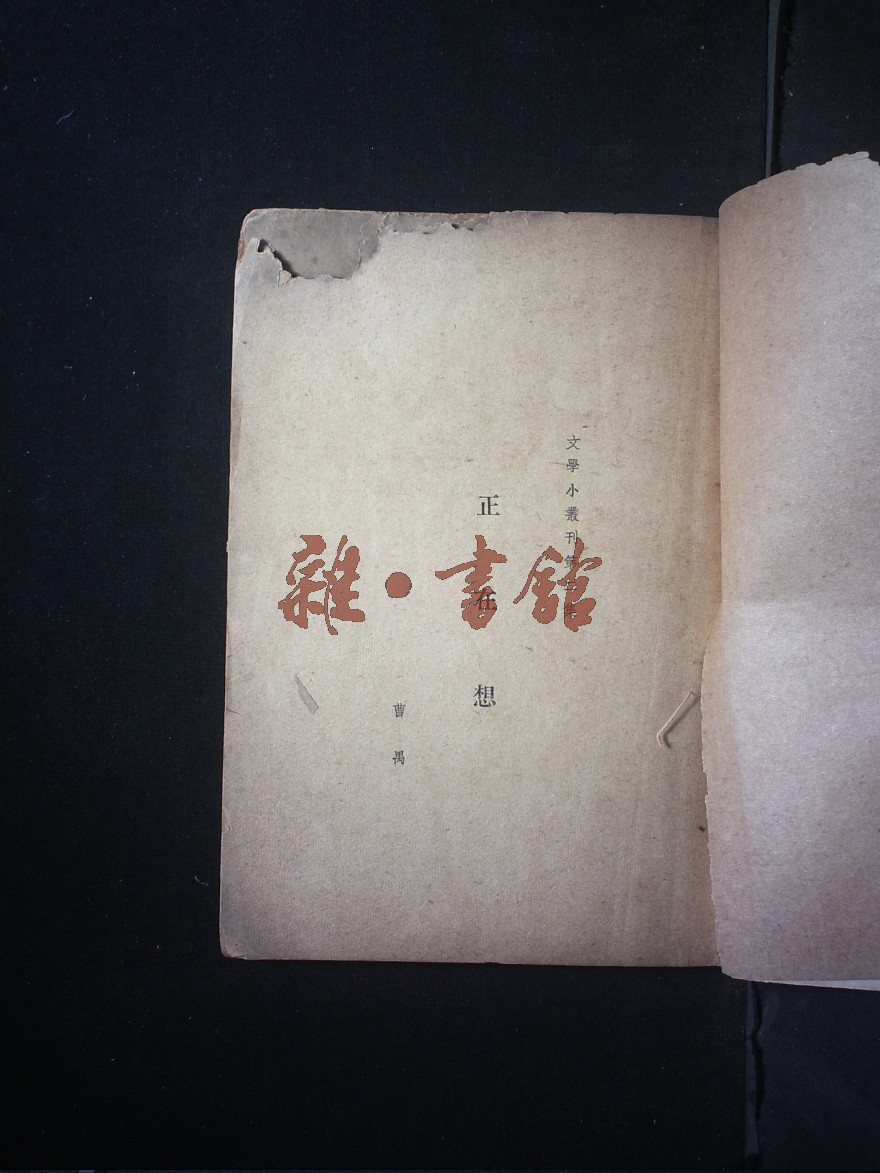 文學小叢刊第一集
正在想
曹禺
雜·書館